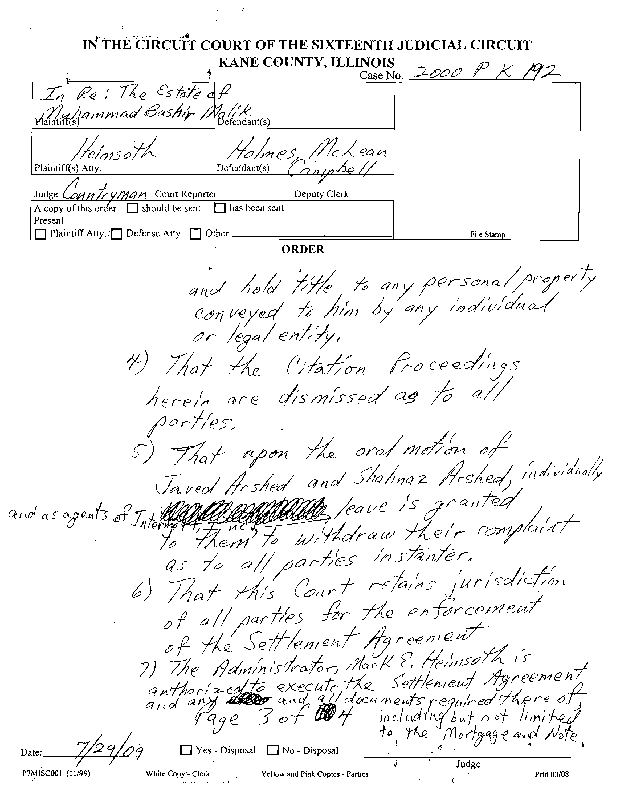 IN THE CIRCUIT COURT OF THE SIXTEENTH JUDICIAL CIRCUIT
KANE COUNTY, ILLINOIS
Case No. 2000 P K 192
In Re: The Estate of
Muhammad Bashir Malik
Plaintiff(s) Defendant(s)
Heimsoth Holmes, McLean
Campbell
Plaintiff(s) Atty. Defendant(s)
Judge Countryman Court Reporter Deputy Clerk
A copy of this order ☐ should be sent ☐ has been sent
Present
☐ Plaintiff Atty. ☐ Defense Atty ☐ Other
File Stamp
ORDER
and hold title to any personal property
conveyed to him by any individual
or legal entity.
4) That the Citation Proceedings
herein are dismissed as to all
parties.
5) That upon the oral motion of
Javed Arshed and Shahnaz Arshed, individually
and as agents of leave is granted
to them to withdraw their complaint
as to all parties instanter.
6) That this Court retains jurisdiction
of all parties for the enforcement
of the Settlement Agreement
7) The Administrator, Mark E. Heimsoth is
authorized to execute the Settlement Agreement
and any and all documents required there of
including but not limited
to, the Mortgage and Note.
Page 3 of 4
Date: 7/29/09 ☐ Yes - Disposal ☐ No - Disposal
Judge
P7-MISC001 (11/99) White Copy - Clerk Yellow and Pink Copies - Parties Print 03/08